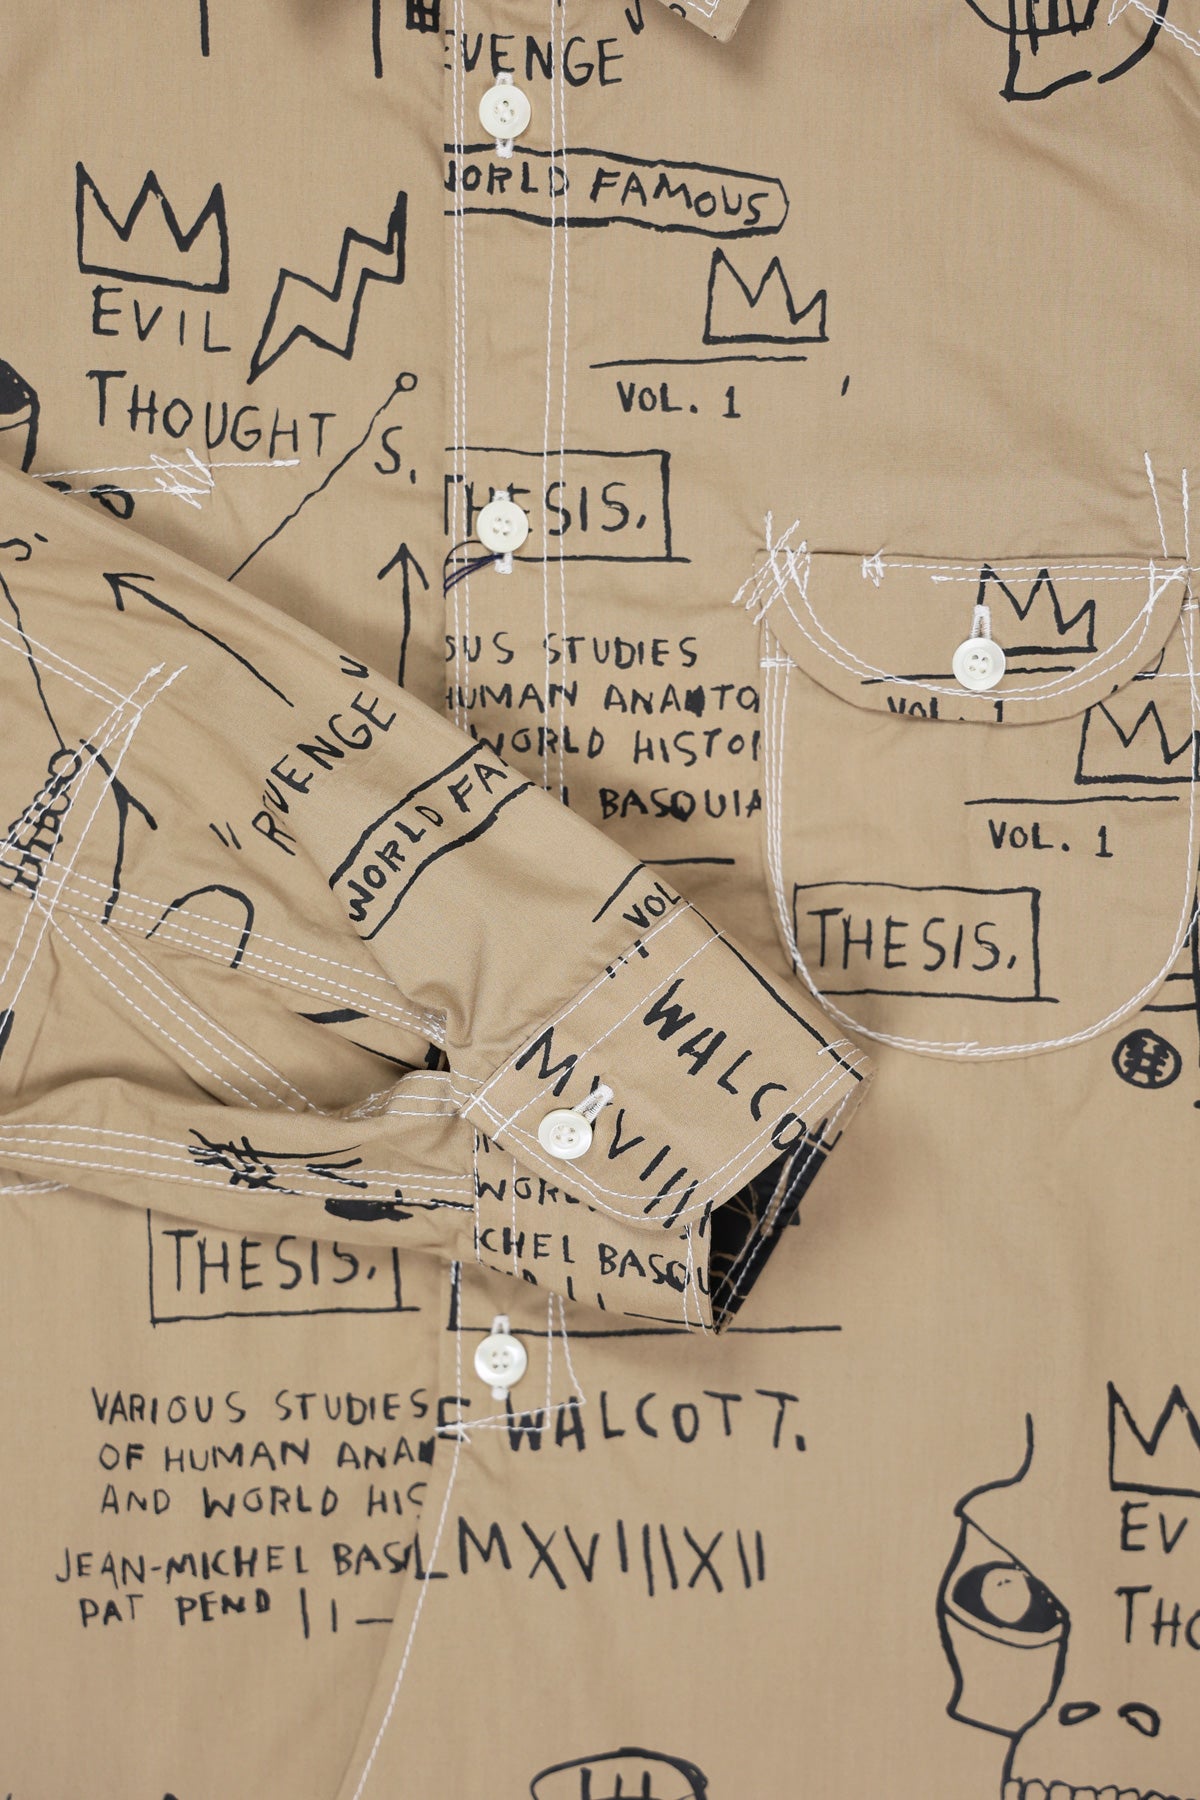 EVENGE
WORLD FAMOUS
EVIL
THOUGHT
S,
VOL. 1
THESIS.
VOL. 1
US STUDIES
HUMAN ANATO
WORLD HISTO
BASQUIA
VOL. 1
THESIS.
"REVENGE"
WORLD FA
VOL
WALCO
MXVIII
WORL
CHEL BASQU
THESIS.
VARIOUS STUDIES
OF HUMAN ANA
AND WORLD HIS
JEAN-MICHEL BAS
PAT PEND
WALCOTT.
MXVIIIXII
EV
THO